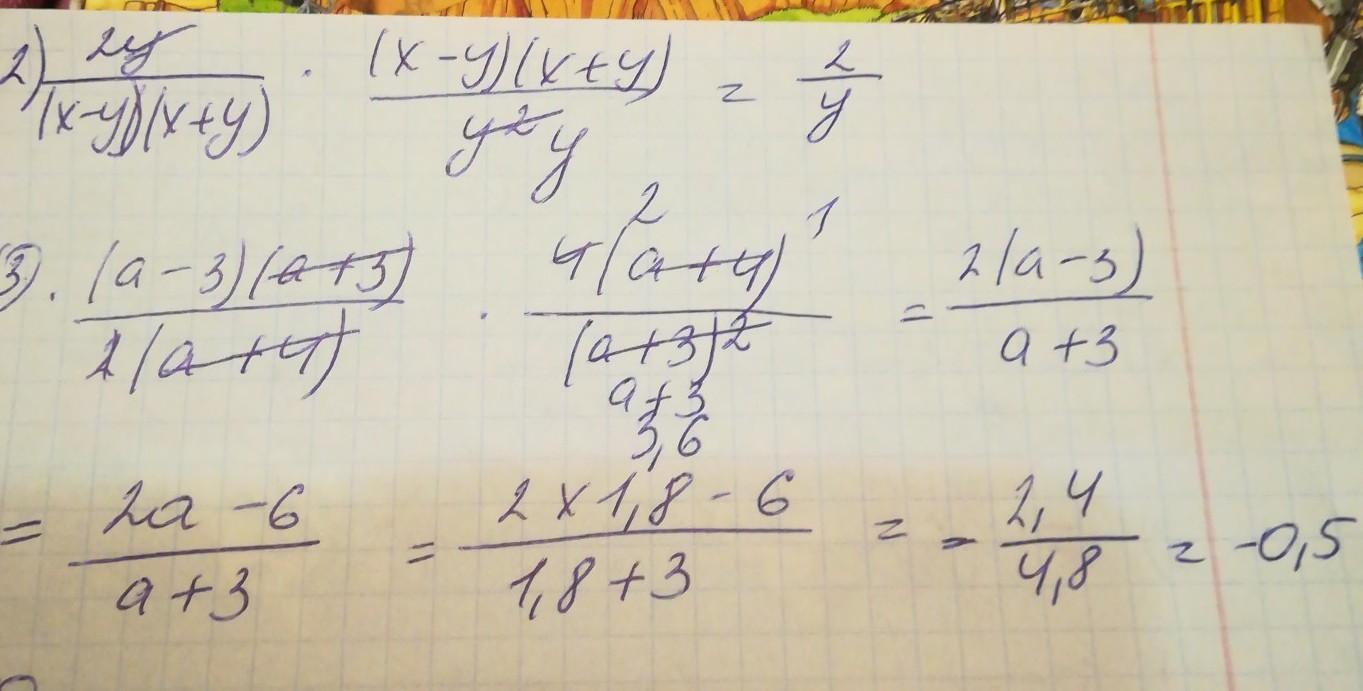 2) 2y / (x-y)(x+y) · (x-y)(x+y) / y² y = 2 / y
2 1
3). (a-3)(a+3) / 2(a+4) · 4(a+4) / (a+3)² = 2(a-3) / a+3
a+3
3,6
= 2a-6 / a+3 = 2 x 1,8 - 6 / 1,8+3 = - 2,4 / 4,8 = -0,5